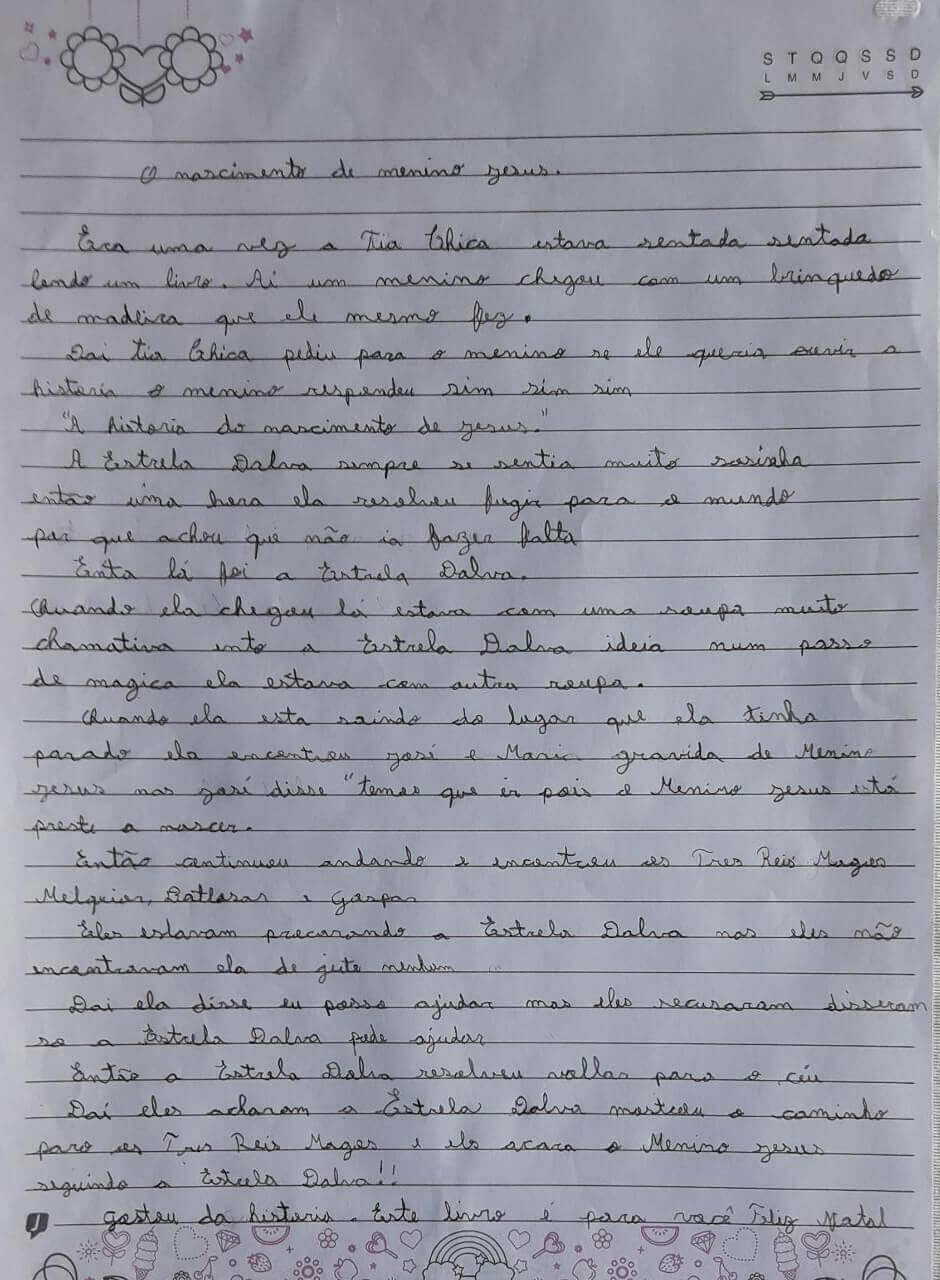 S T Q Q S S D
L M M J V S D
O nascimento de menino jesus.
Era uma vez a Tia Chica estava sentada sentada
lendo um livro. Aí um menino chegou com um brinquedo
de madeira que ele mesmo fez.
Dai tia Chica pediu para o menino se ele queria ouvir a
historia o menino respondeu sim sim sim
"A historia do nascimento de jesus."
A Estrela Dalva sempre se sentia muito sosinha
então uma hora ela resolveu fugir para o mundo
por que achou que não ia fazer falta
Enta lá foi a Estrela Dalva.
Quando ela chegou lá estava com uma roupa muito
chamativa ento a Estrela Dalva ideia num passo
de magica ela estava com outra roupa.
Quando ela esta saindo do lugar que ela tinha
parado ela encontrou josé e Maria gravida de Menino
jesus nas josé disse "temos que ir pois o Menino jesus está
preste a nascer.
Então continuou andando e encontrou os Tres Reis Magos
Melquior, Batlasar e Gaspar
Eles estavam procurando a Estrela Dalva nas eles não
encontravam ela de jeito nenhum
Dai ela disse eu posso ajudar mas eles recusaram disseram
so a Estrela Dalva pode ajudar
Então a Estrela Dalva resolveu voltar para o céu
Daí eles acharam a Estrela Dalva mostrou o caminho
para os Tres Reis Magos e o Menino jesus
seguindo a Estrela Dalva!!
gostou da historia. Este livro é para você Feliz Natal